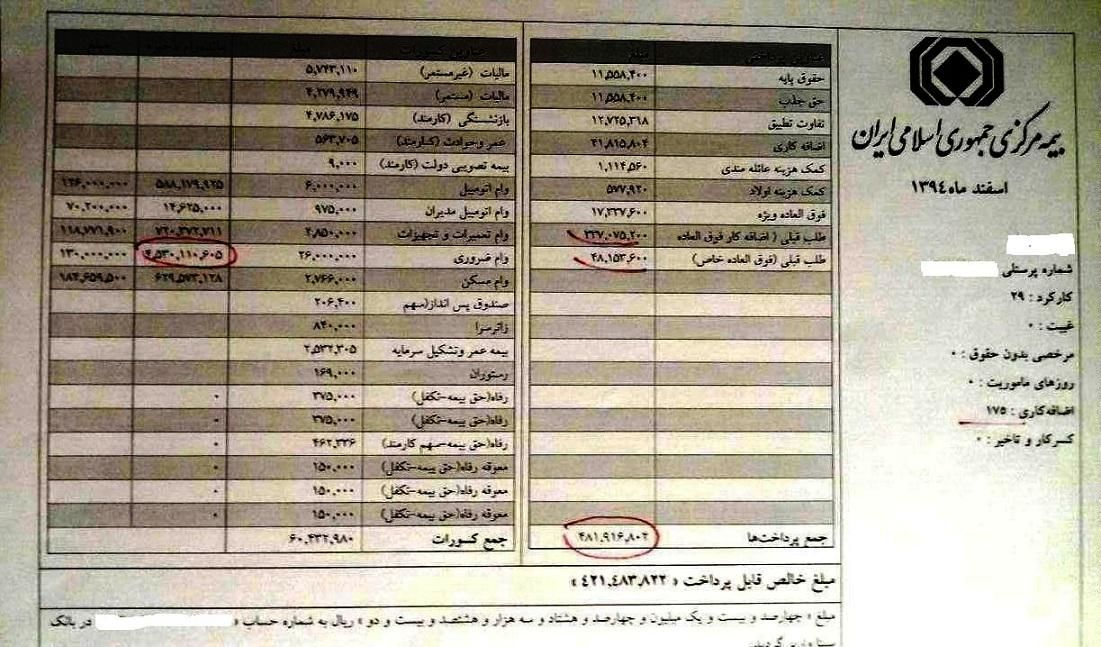 بیمه مرکزی جمهوری اسلامی ایران
اسفند ماه ۱۳۹٤
شماره پرسنلی
کارکرد : ۲۹
غیبت : ۰
مرخصی بدون حقوق : ۰
روزهای ماموریت : ۰
اضافه‌کاری : ۱۷۵
کسرکار و تاخیر : ۰
عناوین پرداختی مبلغ
حقوق پایه ۱۱,۵۵۸,۴۰۰
حق جذب ۱۱,۵۵۸,۴۰۰
تفاوت تطبیق ۱۲,۷۲۵,۳۱۸
اضافه کاری
کمک هزینه عائله مندی ۱,۱۱۴,۵۶۰
کمک هزینه اولاد ۵۷۷,۹۲۰
فوق العاده ویژه ۱۷,۳۳۷,۶۰۰
طلب قبلی ( اضافه کار فوق العاده ۳۳۷,۰۷۵,۲۰۰
طلب قبلی (فوق العاده خاص) ۴۸,۱۵۳,۶۰۰
جمع پرداخت‌ها ۴۸۱,۹۱۶,۸۰۲
عناوین کسورات مبلغ مانده‌وام ذخیره مبلغ
مالیات (غیرمستمر) ۵,۷۴۳,۱۱۰
مالیات (مستمر) ۴,۲۷۹,۹۴۹
بازنشستگی (کارمند) ۴,۷۸۶,۱۷۵
عمر وحوادث (کارمند) ۵۶۳,۷۰۵
بیمه تصویبی دولت (کارمند) ۹,۰۰۰
وام اتومبیل ۶,۰۰۰,۰۰۰ ۵۸۸,۱۷۹,۹۲۵
وام اتومبیل مدیران ۹۷۵,۰۰۰ ۱۴,۶۲۵,۰۰۰ ۷۰,۲۰۰,۰۰۰
وام تعمیرات و تجهیزات ۲,۸۵۰,۰۰۰ ۷۲۰,۳۷۲,۷۱۱ ۱۱۸,۷۷۱,۹۰۰
وام ضروری ۲۶,۰۰۰,۰۰۰ ۴,۵۳۰,۱۱۰,۶۰۵ ۱۳۰,۰۰۰,۰۰۰
وام مسکن ۲,۷۶۶,۰۰۰ ۶۲۹,۵۷۳,۱۲۸ ۱۸۴,۶۵۹,۵۰۰
صندوق پس انداز(سهم ۲۰۶,۴۰۰
زائرسرا ۸۴۰,۰۰۰
بیمه عمر وتشکیل سرمایه ۲,۵۳۲,۳۰۵
رستوران ۱۶۹,۰۰۰
رفاه(حق بیمه-تکفل) ۳۷۵,۰۰۰ ۰
رفاه(حق بیمه-تکفل) ۳۷۵,۰۰۰ ۰
رفاه(حق بیمه-سهم کارمند) ۴۶۲,۳۳۶ ۰
معوقه رفاه(حق بیمه-تکفل) ۱۵۰,۰۰۰ ۰
معوقه رفاه(حق بیمه-تکفل) ۱۵۰,۰۰۰ ۰
معوقه رفاه(حق بیمه-تکفل) ۱۵۰,۰۰۰ ۰
جمع کسورات ۶۰,۴۳۲,۹۸۰
مبلغ خالص قابل پرداخت « ۴۲۱,۴۸۳,۸۲۲ »
مبلغ « چهارصد و بیست و یک میلیون و چهارصد و هشتاد و سه هزار و هشتصد و بیست و دو » ریال به شماره حساب « در بانک
سینا واریز گردید.